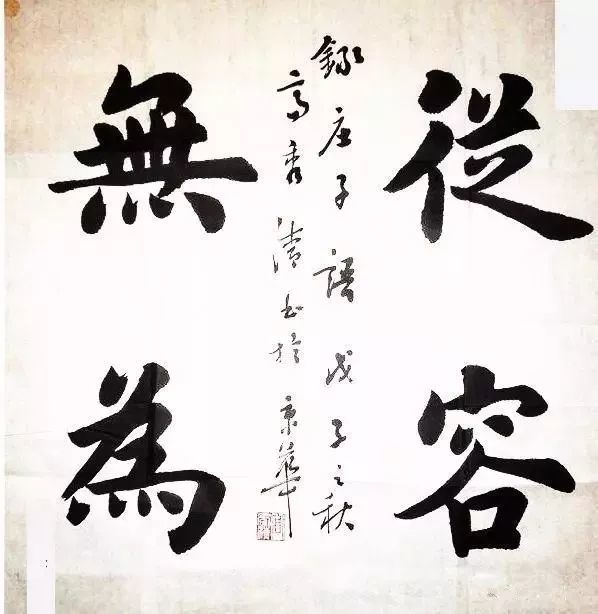 從容
錄庄子語戊子之秋
高秀清书於京華
無為